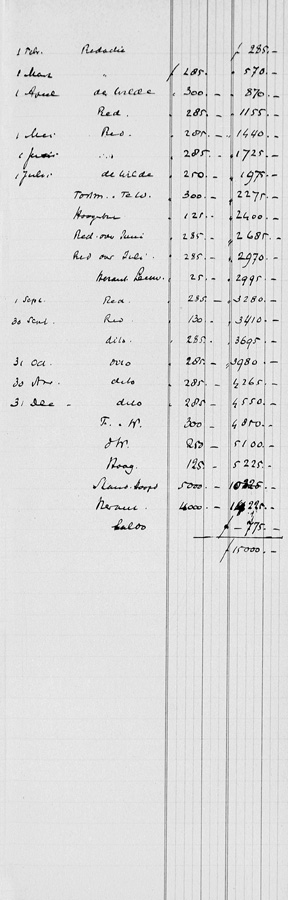 1 Febr. Redactie ƒ 285.-
1 Maart " ƒ 285.- " 570.-
1 April de Wilde " 300.- " 870.-
Red. " 285.- " 1155.-
1 Mei Red. " 285.- " 1440.-
1 Juni " " 285.- " 1725.-
1 Juli de Wilde " 250.- " 1975.-
" 300.- " 2275.-
" 125.- " 2400.-
Red. over Juni " 285.- " 2685.-
Red over Juli " 285.- " 2970.-
" 25.- " 2995.-
1 Sept. Red. " 285.- " 3280.-
30 Sept. Red " 130.- " 3410.-
dito " 285.- " 3695.-
31 Oct. dito " 285.- " 3980.-
30 Nov. dito " 285.- " 4265.-
31 Dec - dito " 285.- " 4550.-
300 - " 4850.-
250 - " 5100.-
Hoog. 125.- " 5225.-
5000.- 10225.-
4000.- 14225.-
Saldo ƒ - 775.-
ƒ 15000.-